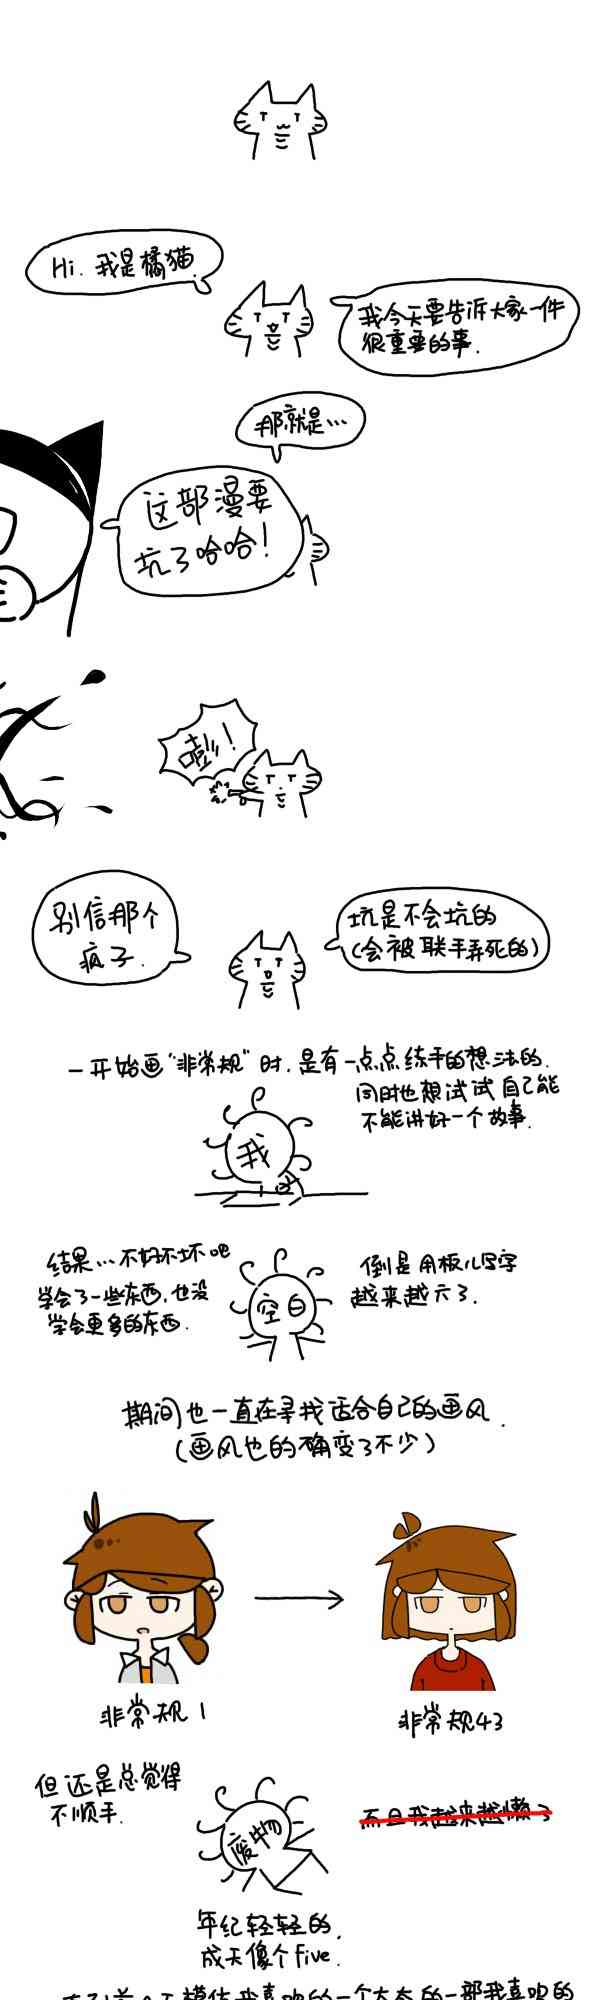 Hi.我是橘猫
我今天要告诉大家一件
很重要的事.
那就是…
这部漫要
坑了哈哈！
嘭！
别信那个
疯子.
坑是不会坑的
(会被联手弄死的)
一开始画"非常规"时.是有一点点练手的想法的.
同时也想试试自己能
不能讲好一个故事.
我
结果…不好不坏吧
学会了一些东西,也没
学会更多的东西.
空白
倒是用板儿写字
越来越六了.
期间也一直在寻找适合自己的画风.
(画风也的确变了不少)
非常规1
非常规43
但还是总觉得
不顺手.
废物
而且我越来越懒了
年纪轻轻的.
成天像个five.